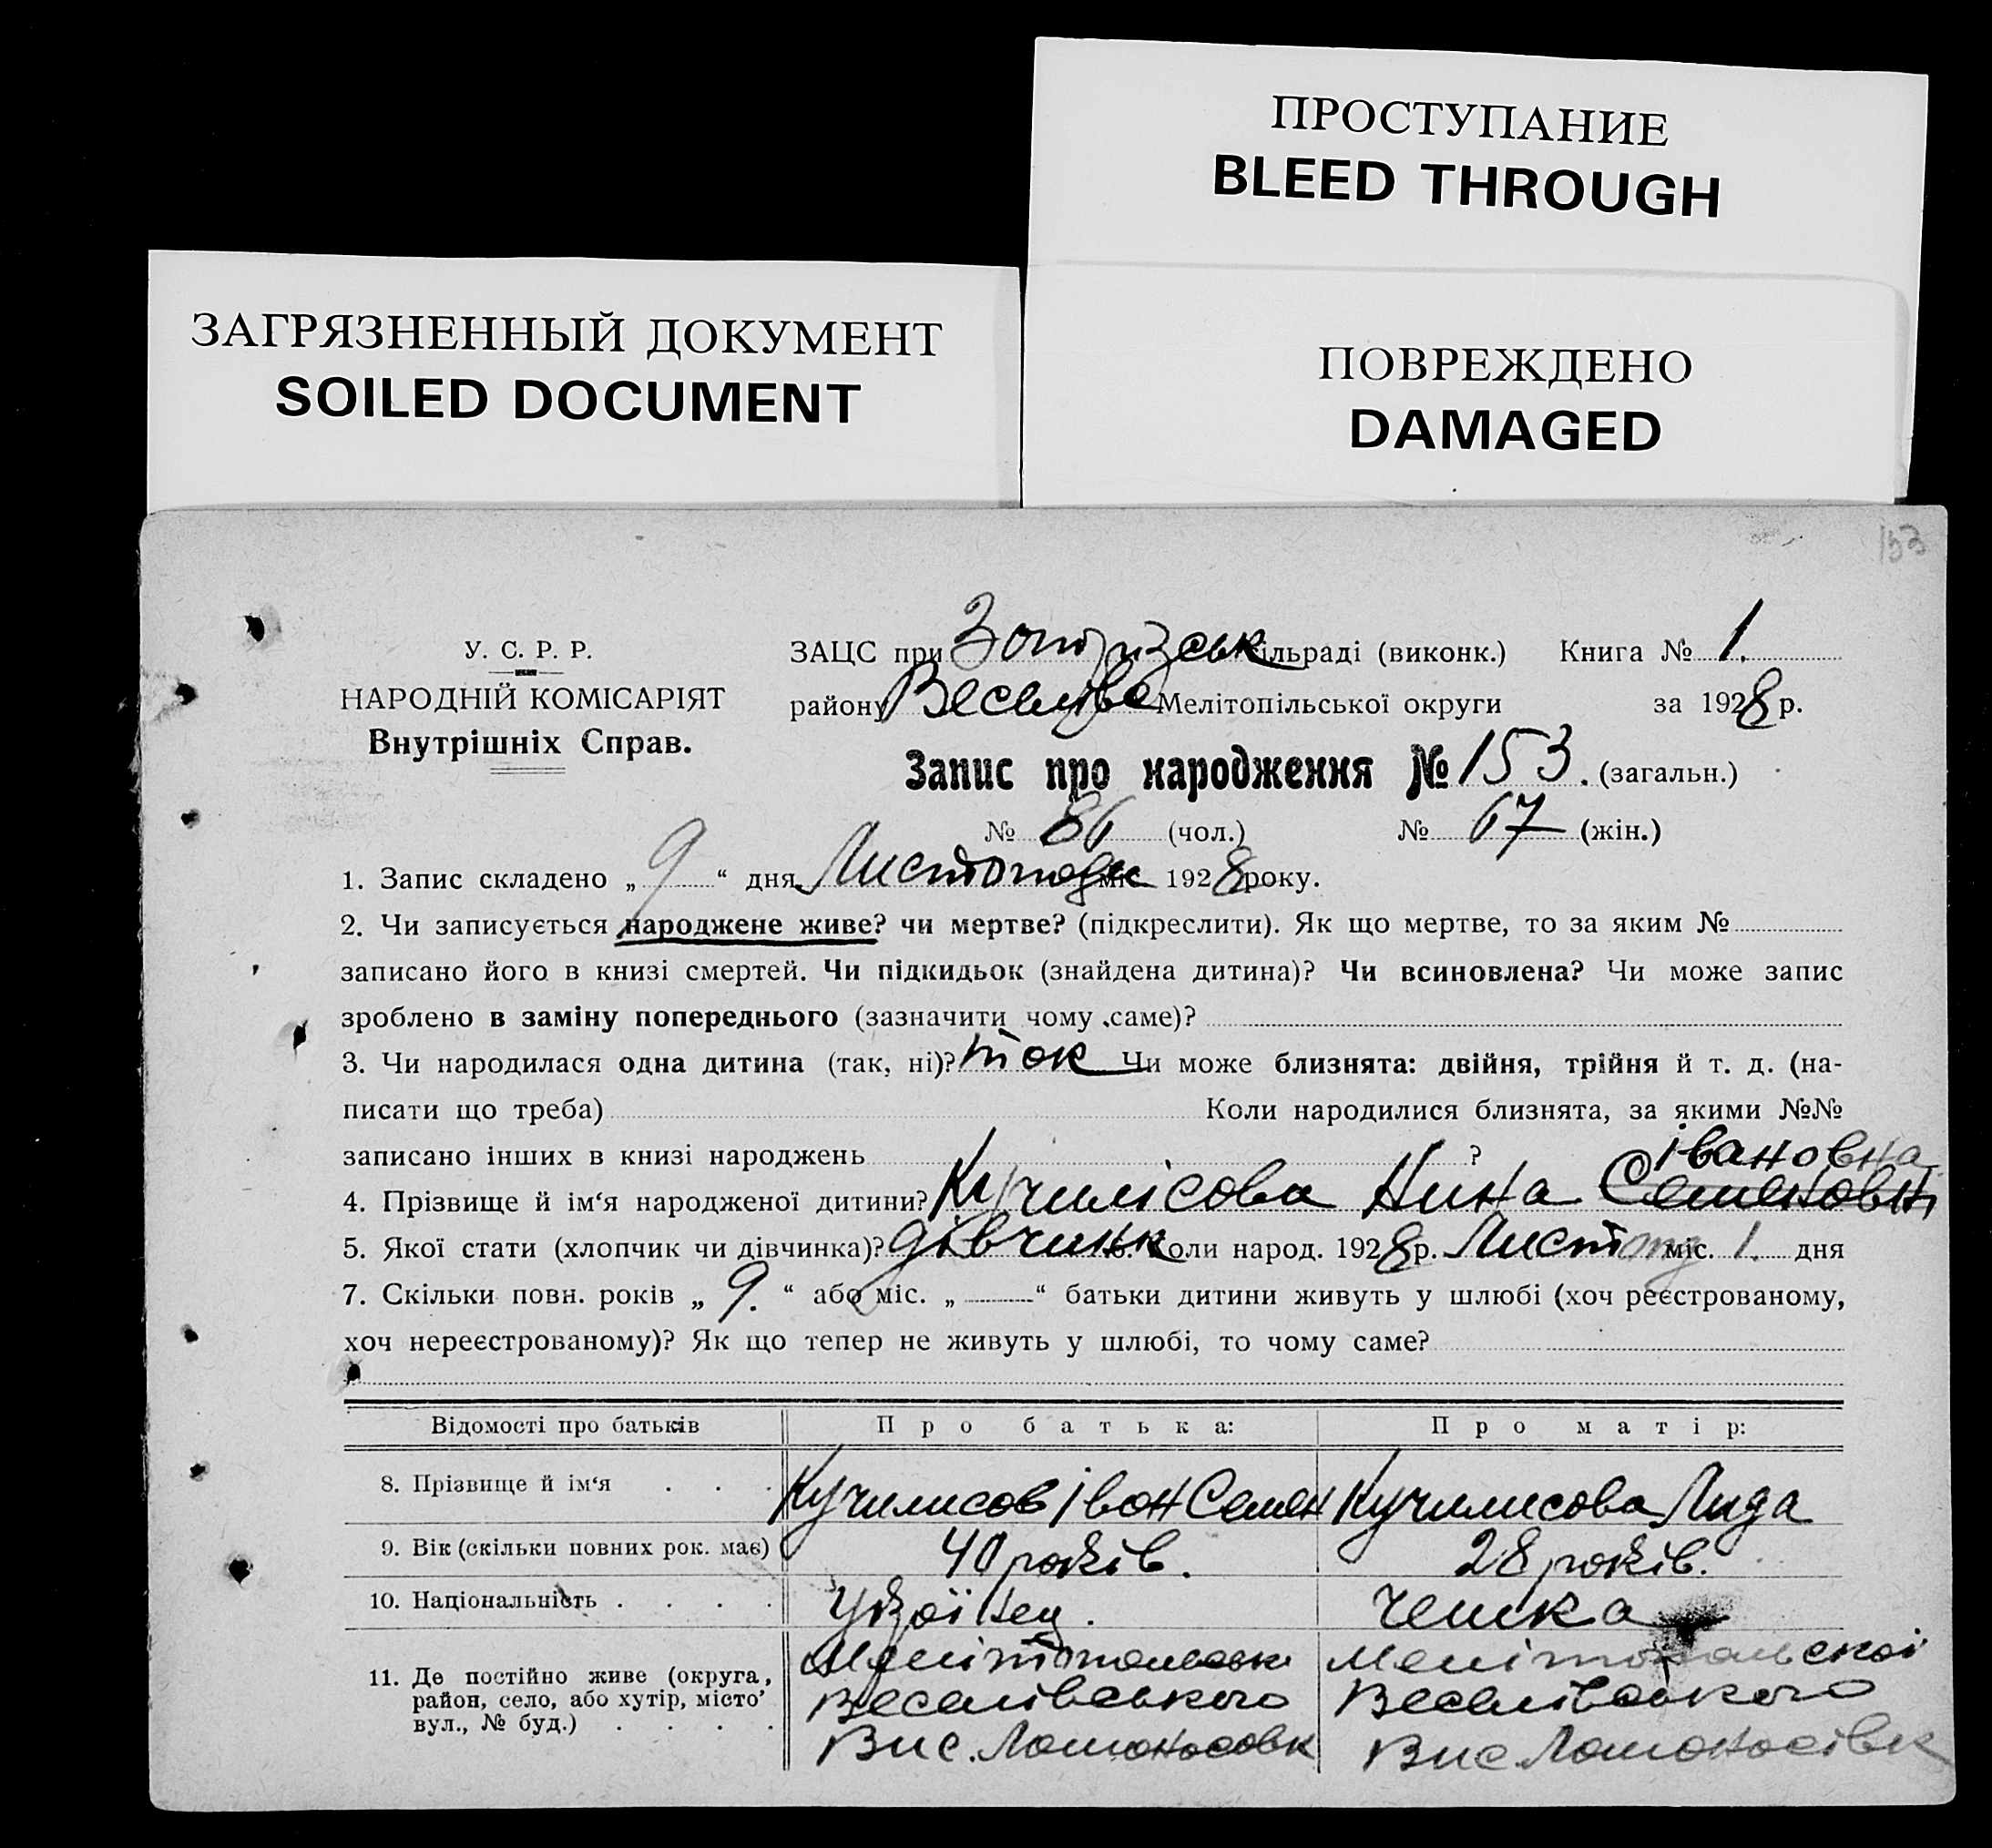 ПРОСТУПАНИЕ
BLEED THROUGH
ЗАГРЯЗНЕННЫЙ ДОКУМЕНТ
SOILED DOCUMENT
ПОВРЕЖДЕНО
DAMAGED
153
У. С. Р. Р.
НАРОДНІЙ КОМІСАРІЯТ
Внутрішніх Справ.
ЗАЦС при сільраді (виконк.) Книга № 1.
району Веселівс Мелітопільської округи за 1928 р.
Запис про народження № 153. (загальн.)
№ 86 (чол.) № 67 (жін.)
1. Запис складено „ 9 “ дня Листопада міс 1928 року.
2. Чи записується народжене живе? чи мертве? (підкреслити). Як що мертве, то за яким №
записано його в книзі смертей. Чи підкидьок (знайдена дитина)? Чи всиновлена? Чи може запис
зроблено в заміну попереднього (зазначити чому саме)?
3. Чи народилася одна дитина (так, ні)? так Чи може близнята: двійня, трійня й т. д. (на-
писати що треба) Коли народилися близнята, за якими №№
записано інших в книзі народжень ?
івановна
4. Прізвище й ім‘я народженої дитини? Кучилісова Нина Семеновн
5. Якої стати (хлопчик чи дівчинка)? дівчинк 6. Коли народ. 1928 р. Листопад міс. 1. дня
7. Скільки повн. років „ 9. “ або міс. „ “ батьки дитини живуть у шлюбі (хоч реєстрованому,
хоч нереєстрованому)? Як що тепер не живуть у шлюбі, то чому саме?
Відомості про батьків Про батька: Про матір:
8. Прізвище й ім‘я . . . Кучилисов Іван Семен Кучилисова Лида
9. Вік (скільки повних рок. має) 40 років. 28 років.
10. Національність . . . . Українец. Чешка
11. Де постійно живе (округа, район, село, або хутір, місто’ вул., № буд.) . . . .
Мелітопольськ Мелітопольскої
Веселівського Веселівського
Вис. Ломоносовк Вис Ломоносівк